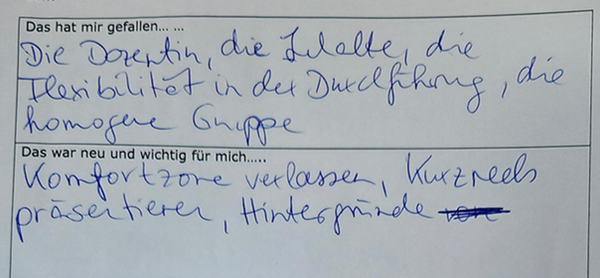 Das hat mir gefallen... ...
Die Dozentin, die Inhalte, die
Flexibilität in der Durchführung, die
homogene Gruppe
Das war neu und wichtig für mich.....
Komfortzone verlassen, Kurzreels
präsentieren, Hintergründe